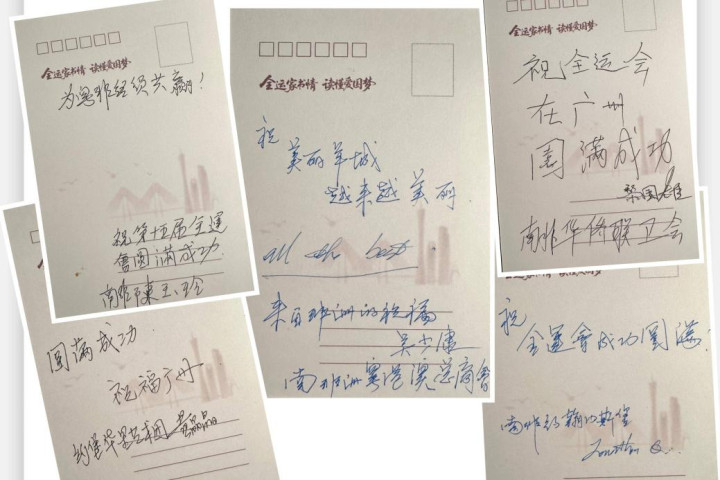 全运家书情 读懂爱国梦
为您非经贸共赢!
祝第十五届全运
會圆满成功
南非陳玉玲
全运家书情 读懂爱国梦
祝
美丽羊城
越来越美丽
all the best
来自非洲的祝福
吴少康
南部非洲粤港澳总商會
全运家书情 读懂爱国梦
祝全运会
在广州
圆满成功
南非华侨联卫会
圆满成功
祝福广州
全运家书情 读懂爱国梦
祝
全運會成功圆满!
南非约翰内斯堡